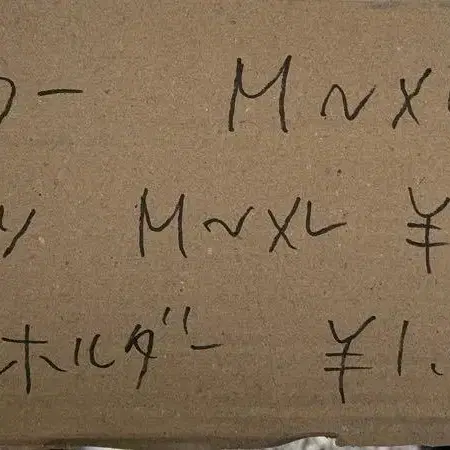 ー M～X
ツ M～XL ¥
ホルダー ¥1.